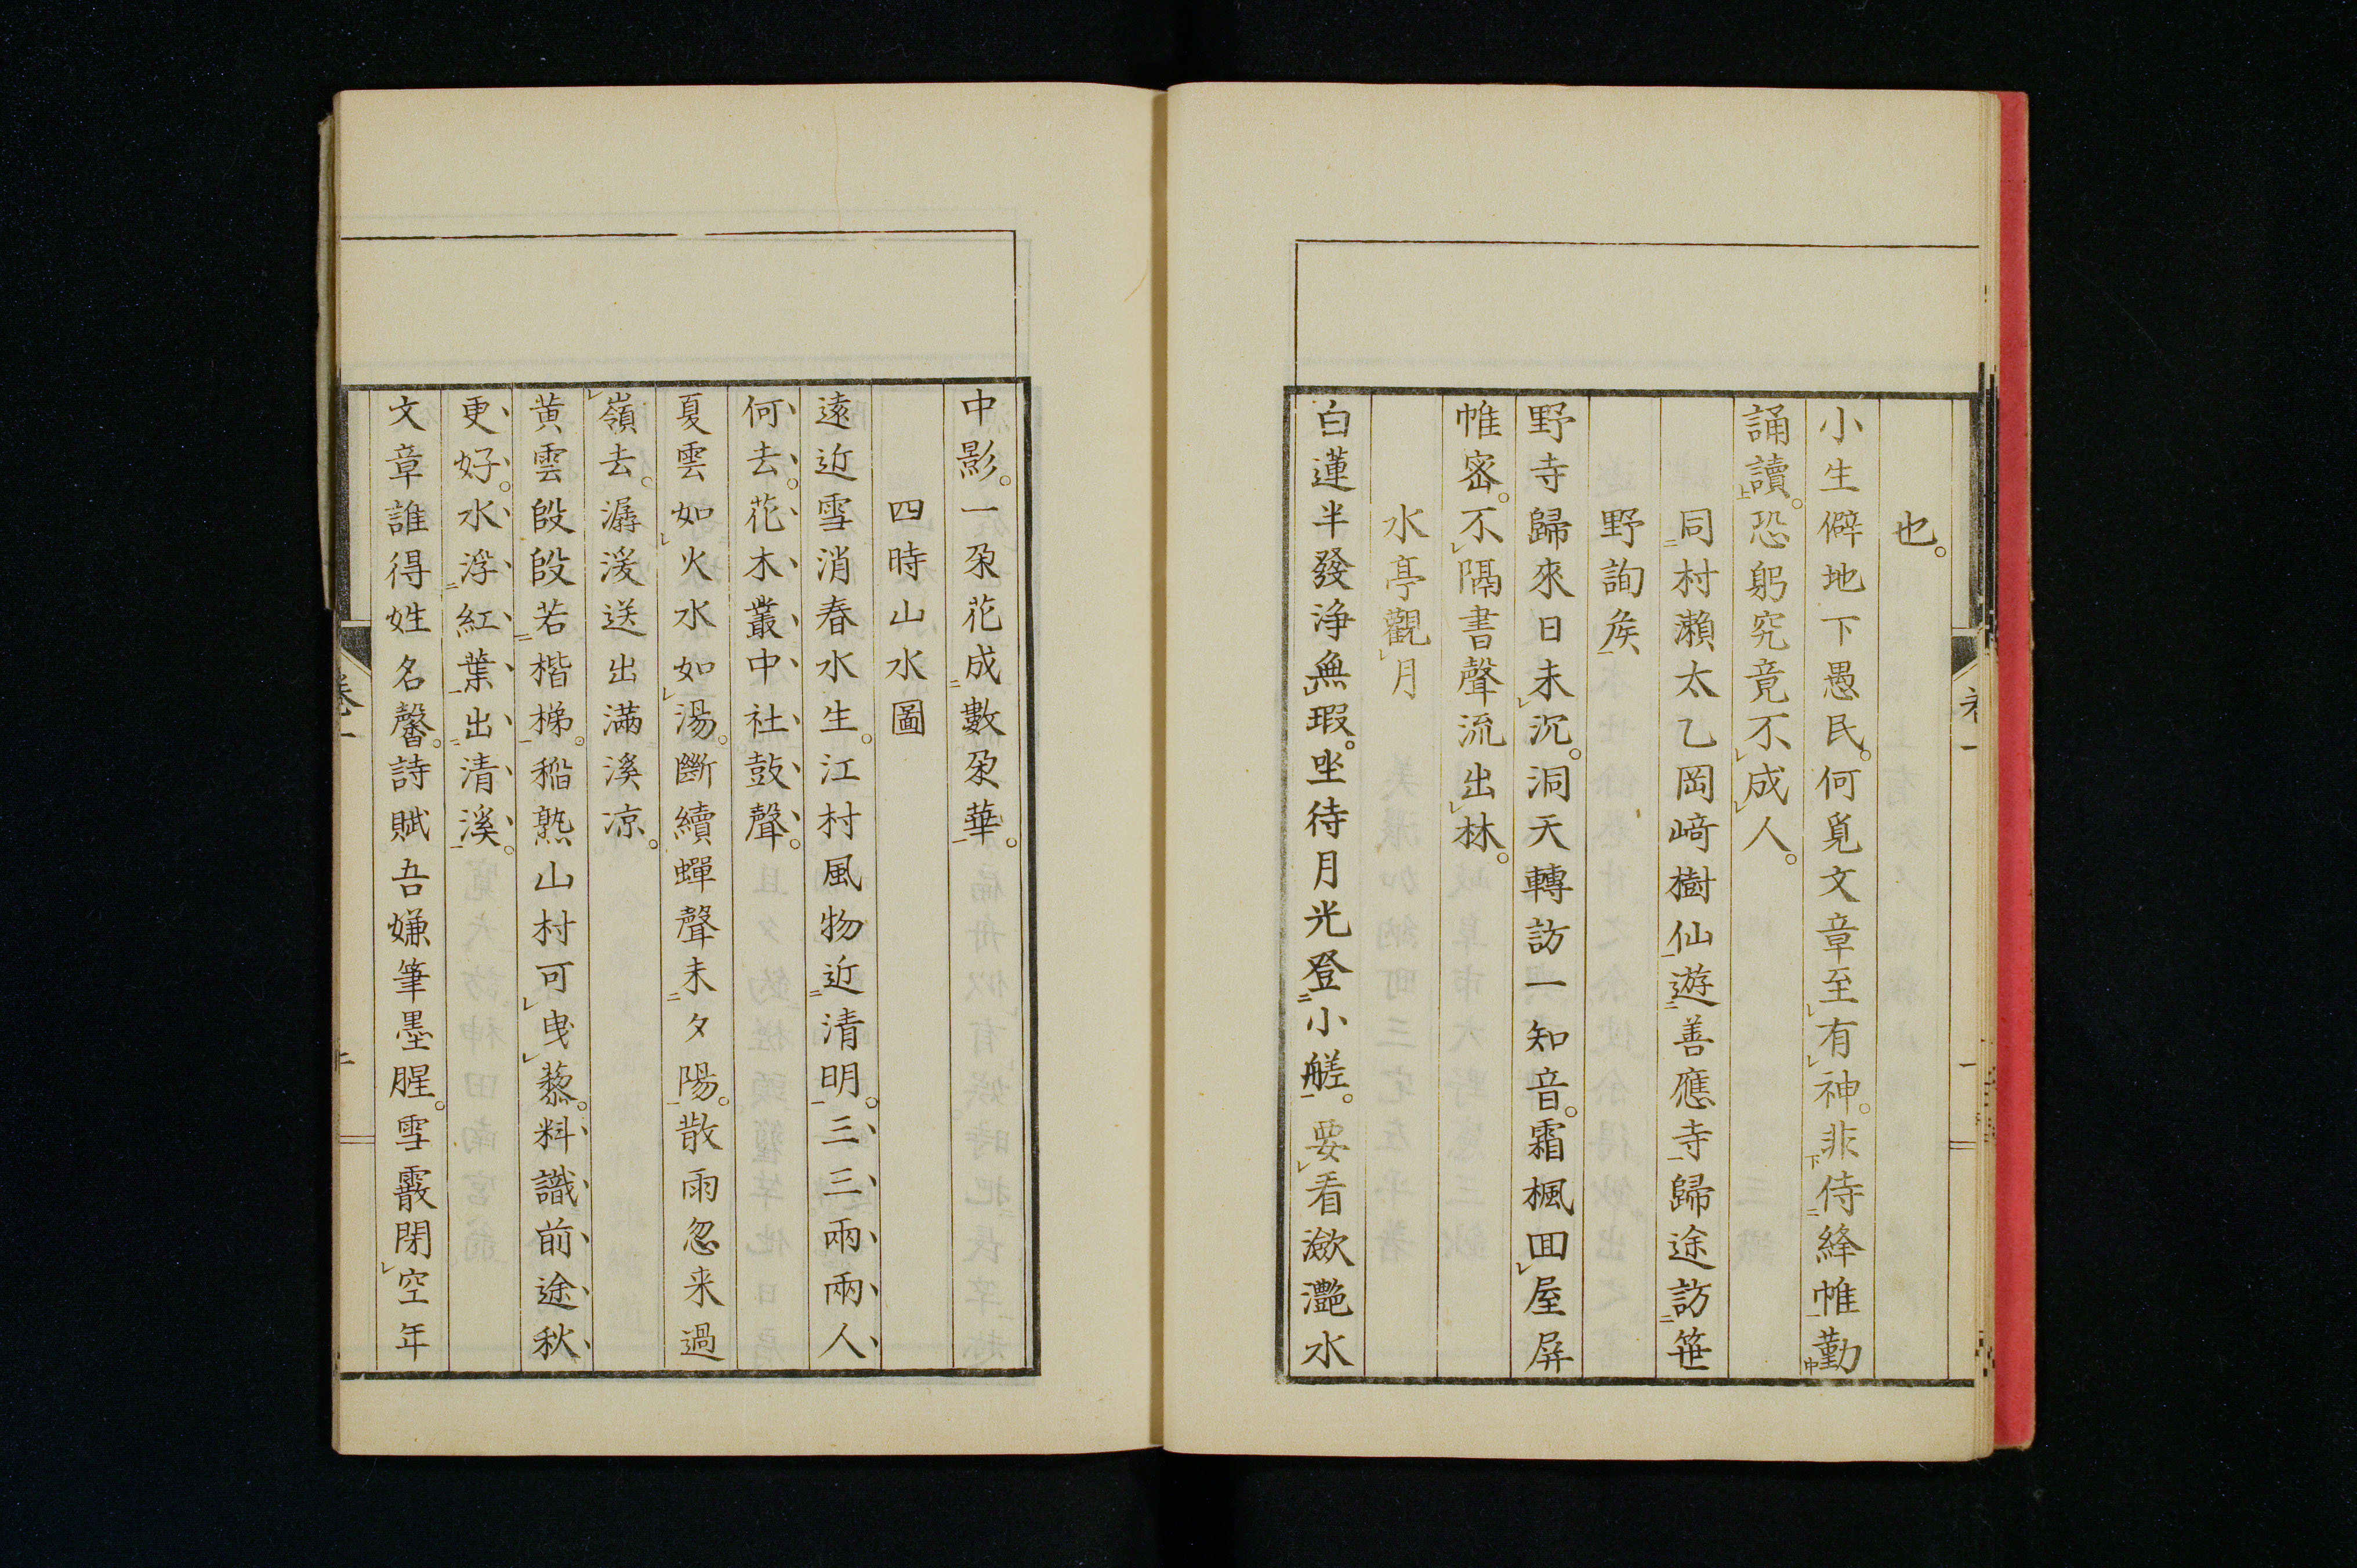 也。
小生僻地下愚民。何覓文章至有神。非侍絳帷勤
誦讀。恐躬究竟不成人。
同村瀨太乙岡﨑樹仙遊善應寺歸途訪笹
野詢矦
野寺歸來日未沉。洞天轉訪一知音。霜楓囬屋屏
帷密。不隔書聲流出林。
水亭觀月
白蓮半發浄無瑕。坐待月光登小艖。要看瀲灔水
中影。一朶花成數朶華。
四時山水圖
遠近雪消春水生。江村風物近清明。三三兩兩人
何去。花木叢中社鼓聲。
夏雲如火水如湯。斷續蟬聲未夕陽。散雨忽来過
嶺去。潺湲送出滿溪凉。
黄雲段段若楷梯。稻熟山村可曳藜。料識前途秋
更好。水浮紅葉出清溪。
文章誰得姓名馨。詩賦吾嫌筆墨腥。雪霰閉空年
卷一